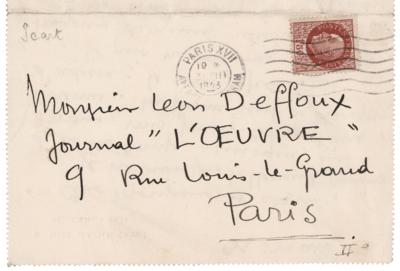 Scart
PARIS XVII
1943
Monsieur Leon Deffoux
Journal "L'ŒUVRE"
9 Rue Louis-le-Grand
Paris
IIº